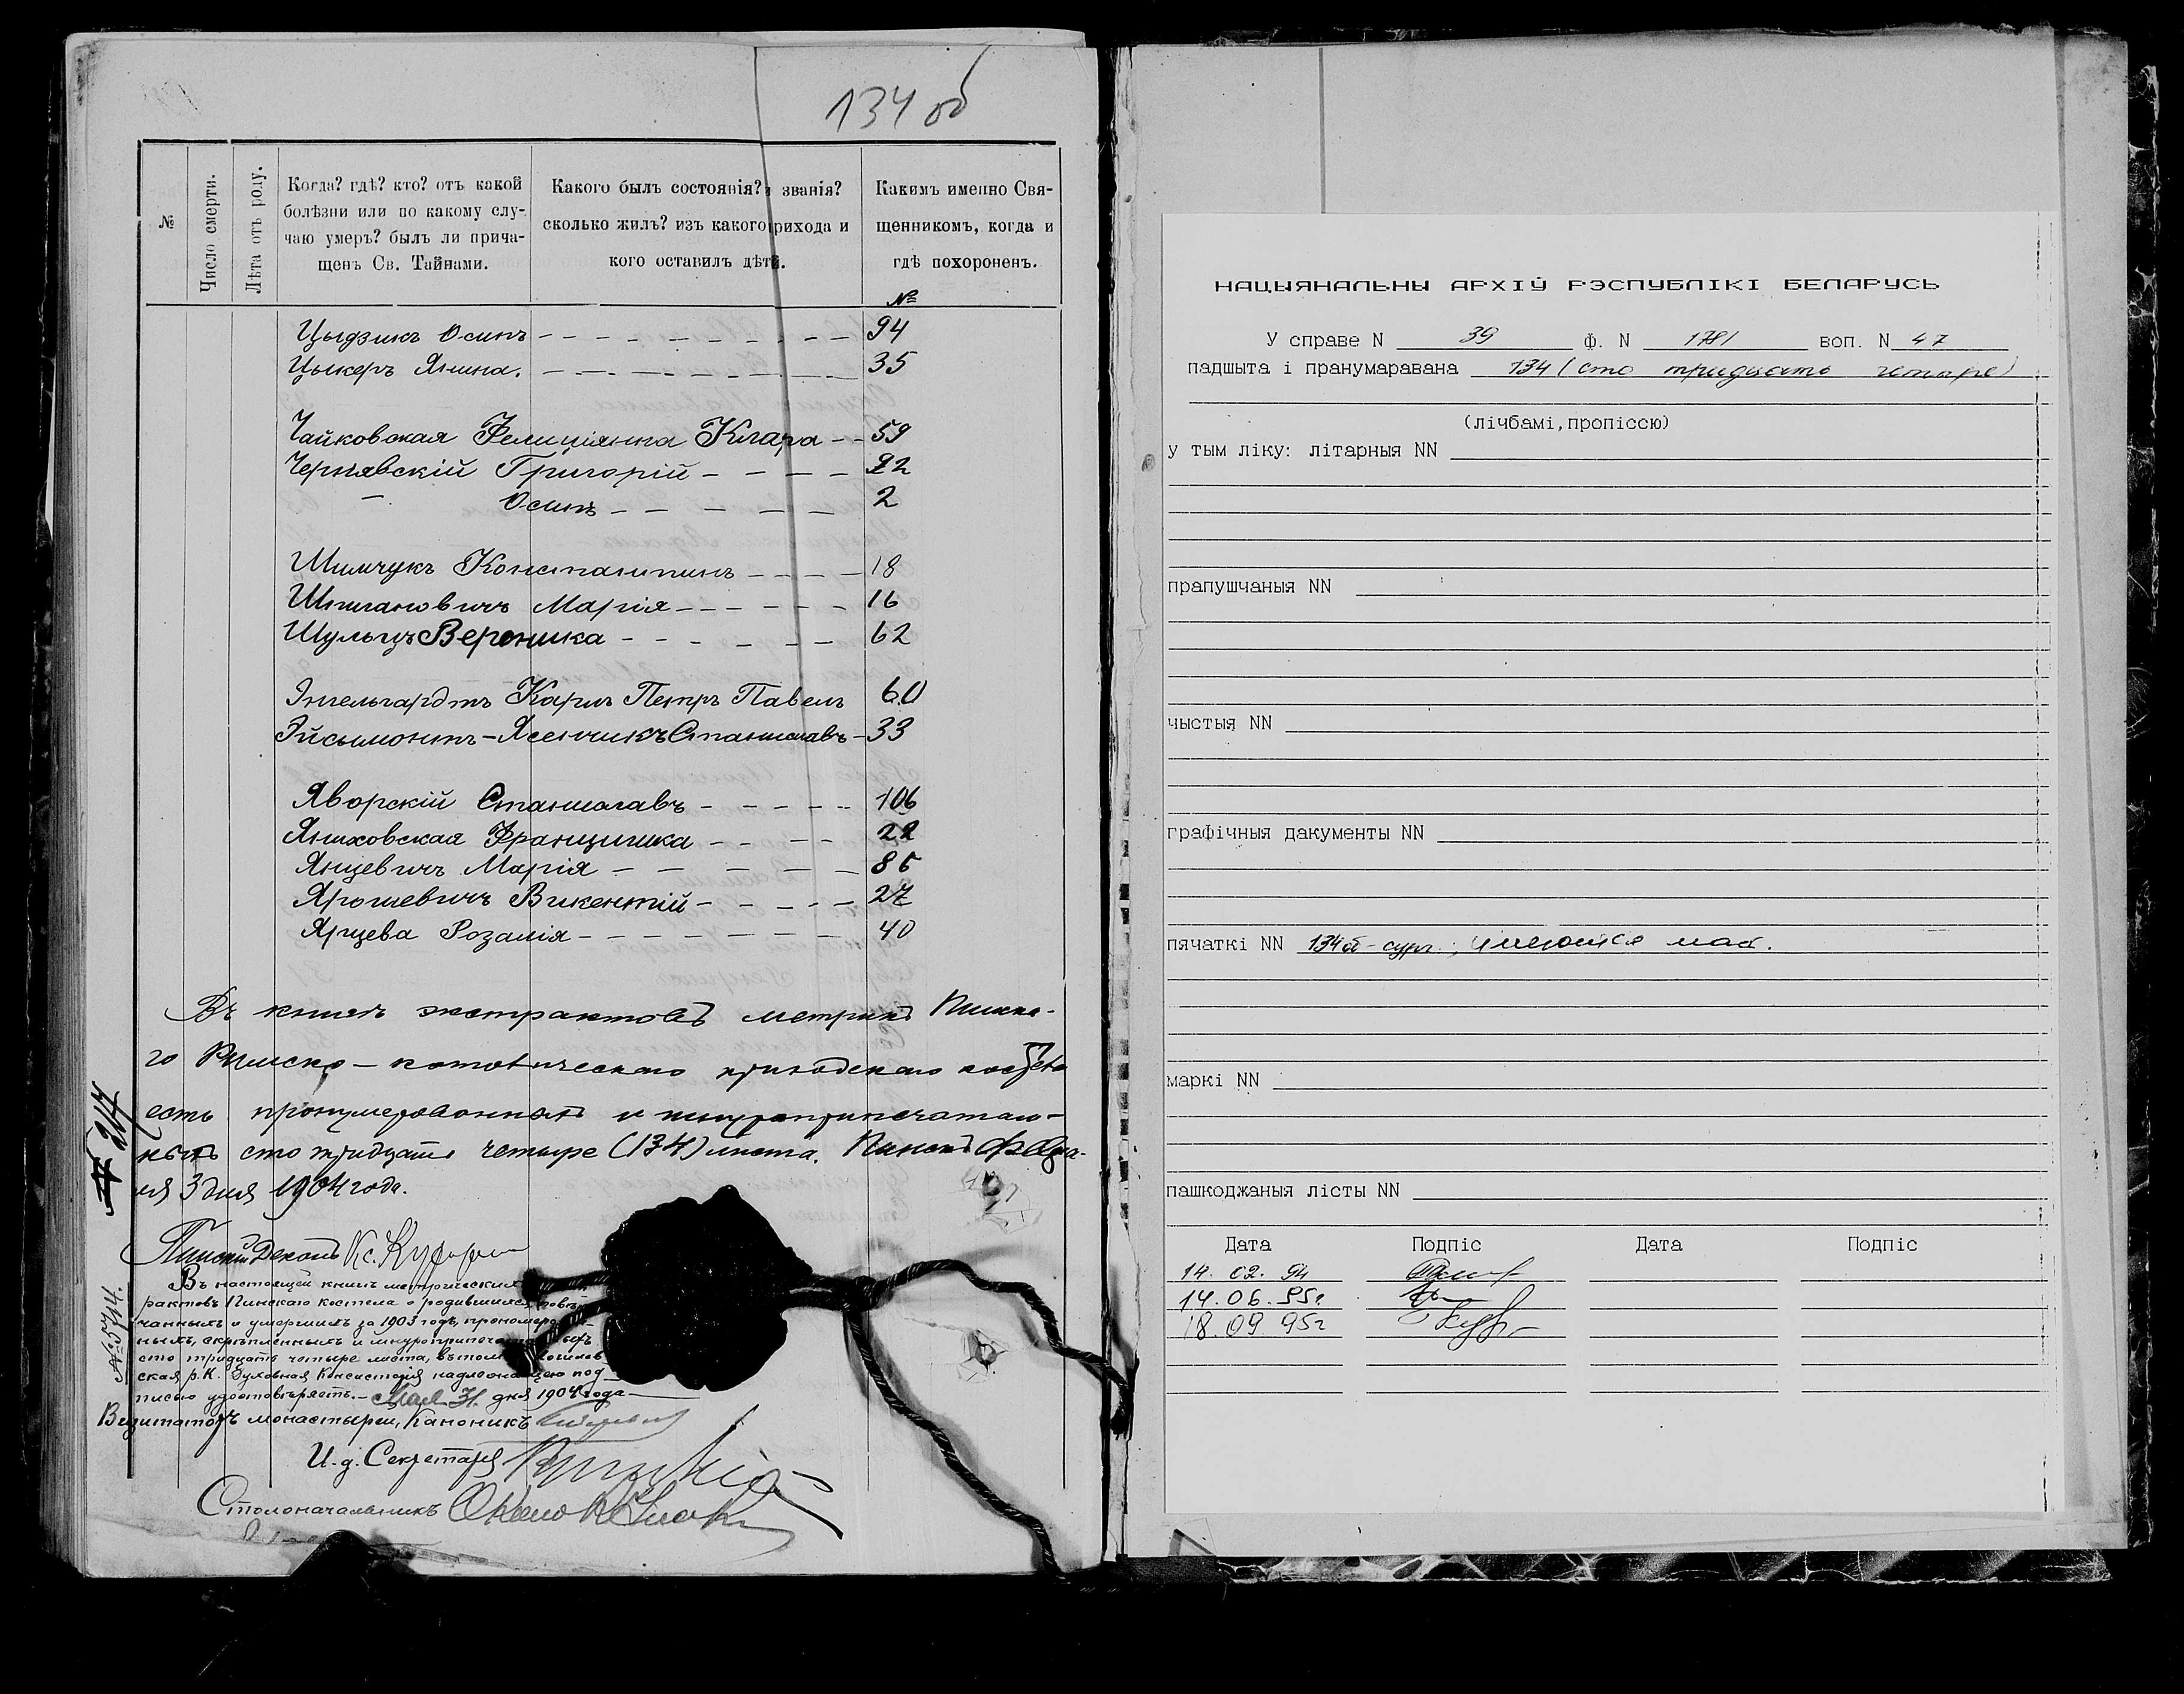 134 об
№
Число смерти.
Лѣта отъ роду.
Когда? гдѣ? кто? отъ какой
болѣзни или по какому слу-
чаю умеръ? былъ ли прича-
щенъ Св. Тайнами.
Какого былъ состоянія? и званія?
сколько жилъ? изъ какого прихода и
кого оставилъ дѣтей.
Какимъ именно Свя-
щенникомъ, когда и
гдѣ похороненъ.
№
Цыдзикъ Осипъ 94
Цыкеръ Янина. 35
Чайковская Фелиціянна Клара 59
Чернявскій Григорій
" Осипъ 2
Шимчукъ Константинъ 18
Марія 16
Шульцъ Вероника 62
Энгельгардтъ Карлъ Петръ Павелъ 60
Эйсымонтъ-Ясенчикъ Станиславъ 33
Яворскій Станиславъ 106
Яниховская Францишка 22
Янцевичъ Марія
Ярошевичъ Викентій 27
Ярцева Розалія 40
Въ книгѣ экстрактовъ метрикъ Пинска-
го Римско-католическаго приходскаго костела
есть пронумерованныхъ и шнуроприпечатан-
ныхъ сто тридцать четыре (134) листа. Пинскъ Февра-
ля 3 дня 1904 года.
№ 217
Пинскій Деканъ Кс.
№ 5714.
Въ настоящей книгѣ метрическихъ
рактовъ Пинскаго костела о родившихся, повѣн-
чанныхъ и умершихъ за 1903 годъ, прономеро-
ныхъ, скрѣпленныхъ и шнуроприпечатанныхъ
сто тридцать четыре листа, въ томъ Могилев-
ская р. К. Духовная Консисторія надлежащею под-
писью удостовѣряетъ. - Мая 31 дня 1904 года
Визитаторъ монастырей, Каноникъ
И. д. Секретаря
Столоначальникъ
НАЦЫЯНАЛЬНЫ АРХІЎ РЭСПУБЛІКІ БЕЛАРУСЬ
У справе N 39 Ф. N 1781 воп. N 47
падшыта і пранумаравана 134 (сто тридцать четыре)
(лічбамі,пропіссю)
у тым ліку: літарныя NN
прапушчаныя NN
чыстыя NN
графічныя дакументы NN
пячаткі NN 134 об - сург.; имеются
маркі NN
пашкоджаныя лісты NN
Дата Подпіс Дата Подпіс
14. 02. 94
14. 06. 95г.
18. 09 95г